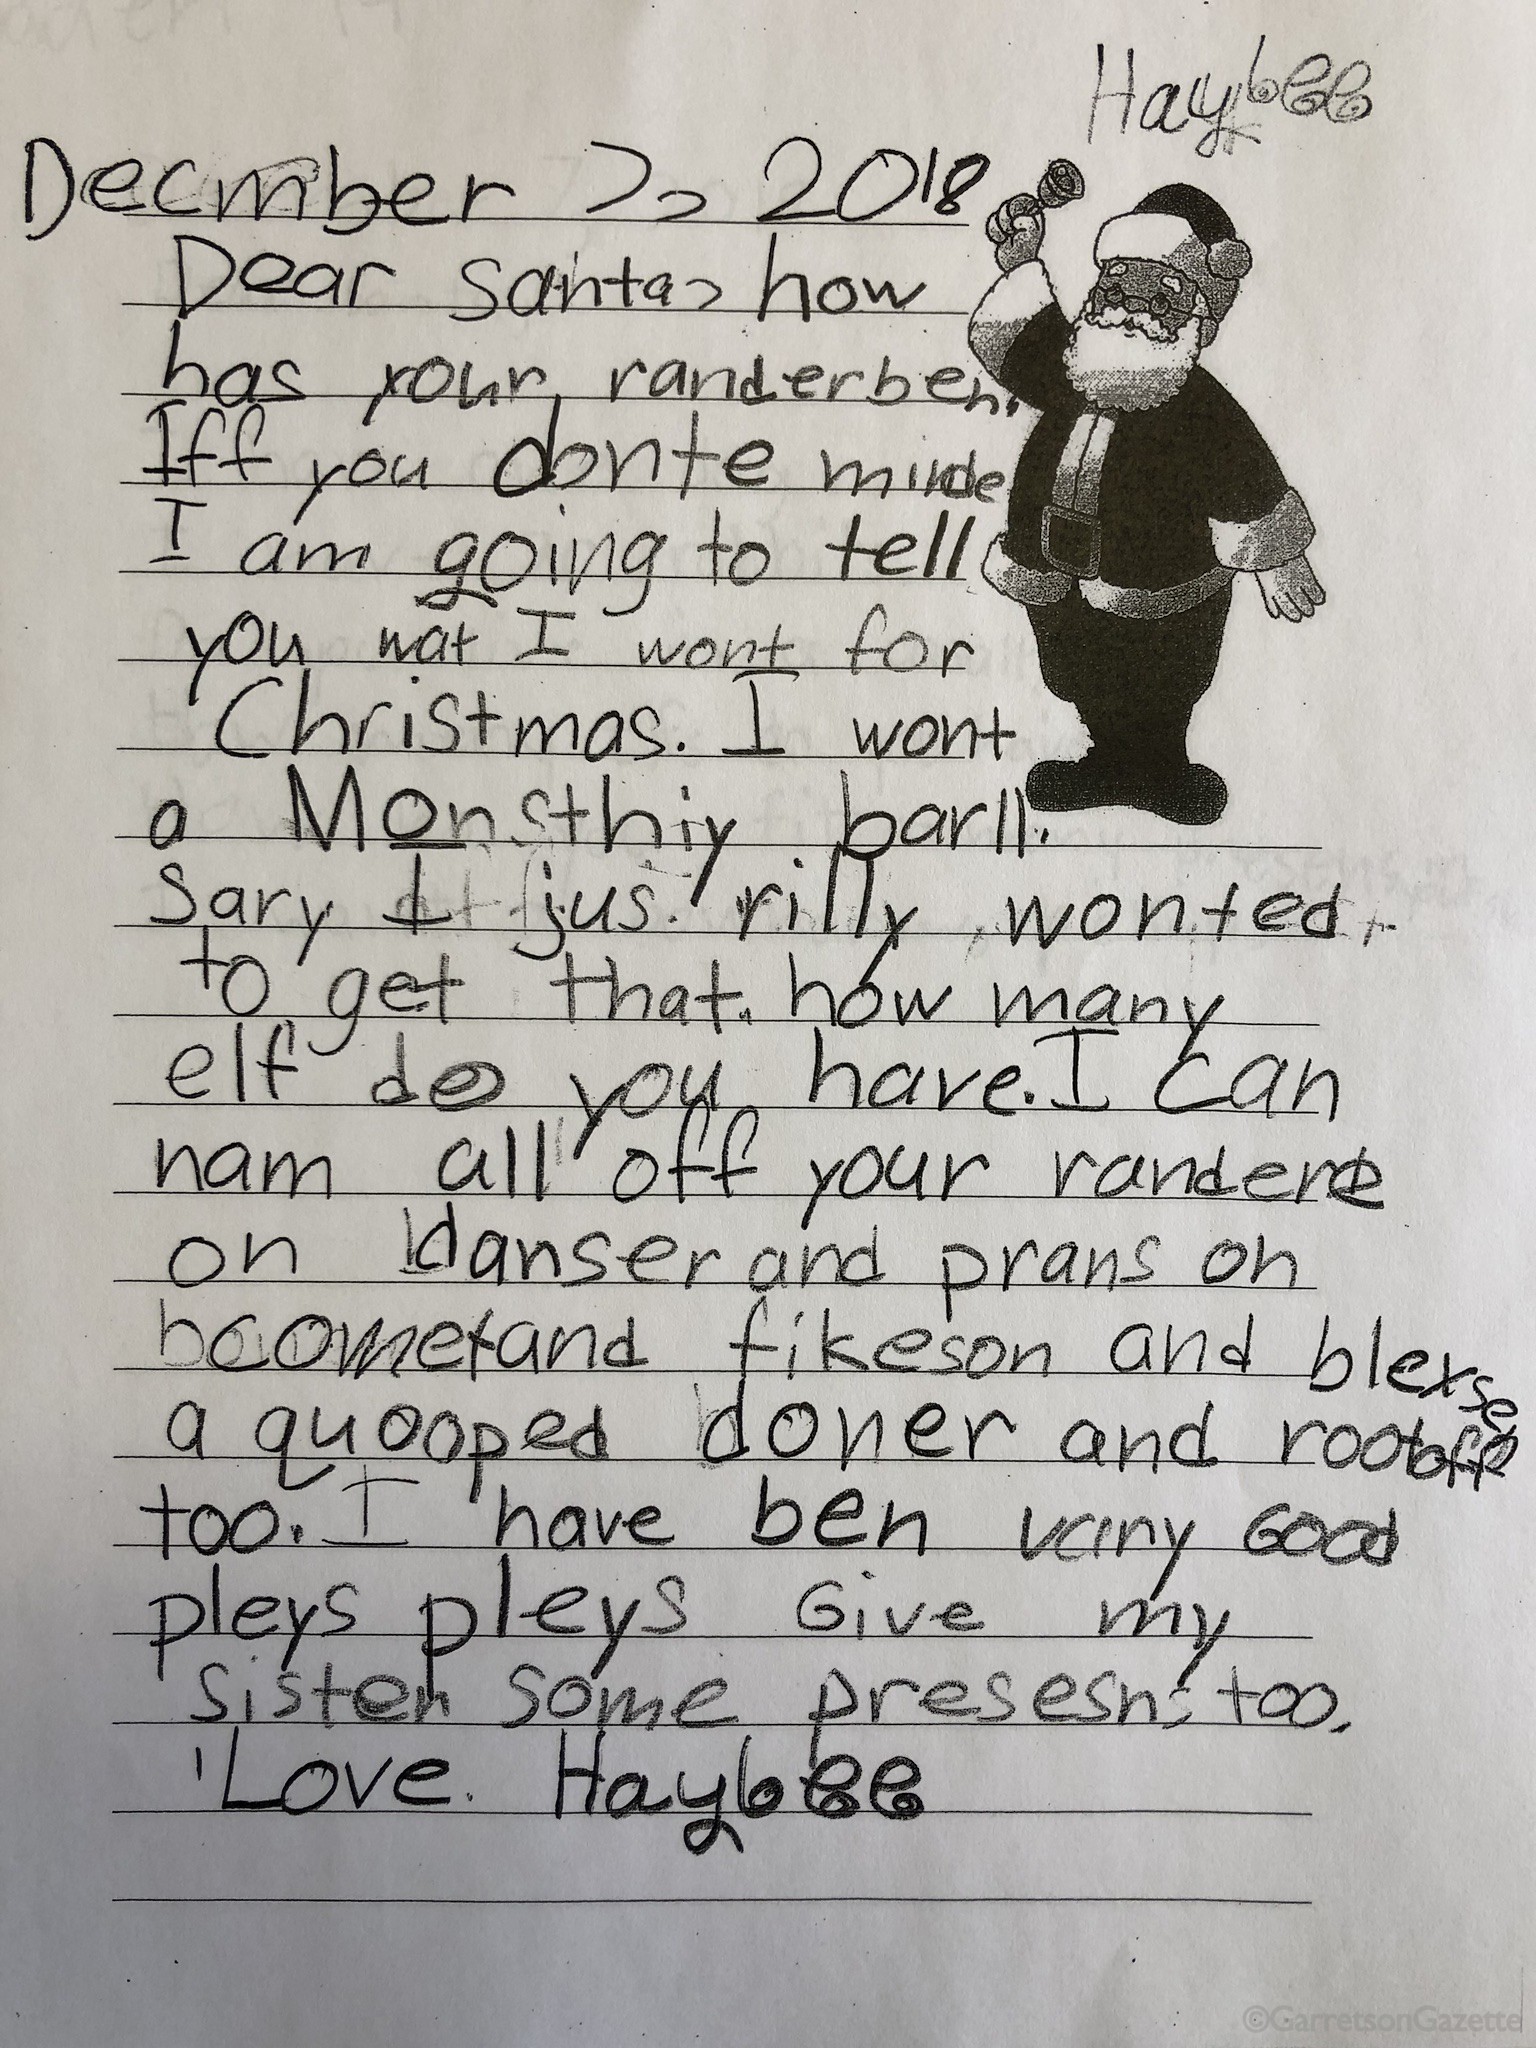 Haybee
Decmber 7, 2018
Dear Santa, how
has your randerben.
Iff you donte minde
I am going to tell
you wat I wont for
Christmas. I wont
a Monsthiy barll.
Sary I jus. rilly wonted
to get that. how many
elf do you have. I can
nam all off your randere
on danser and prans on
comet and fikeson and blexse
a quooped doner and roo off
too. I have ben variy Good
pleys pleys Give my
sister some presesns too.
Love. Haybee
©GarretsonGazette